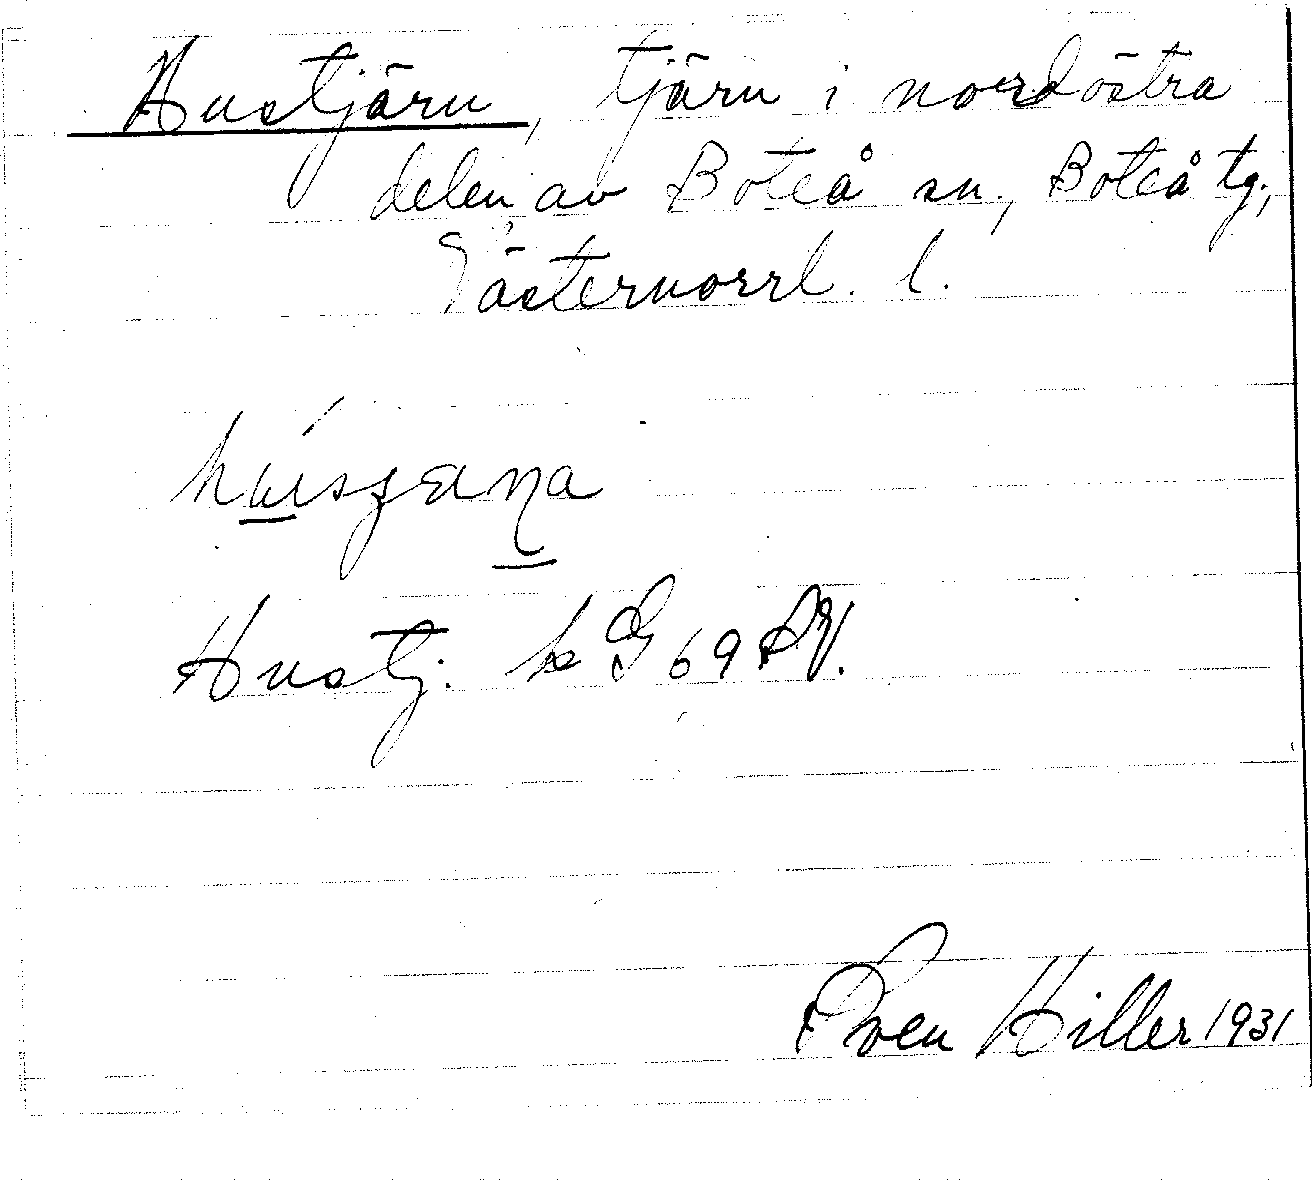 Hustjärn, tjärn i nordöstra
delen av Boteå sn., Boteå tg.,
Västernorrl. l.
Hustj. k G 69 SV.
Sven Hiller 1931